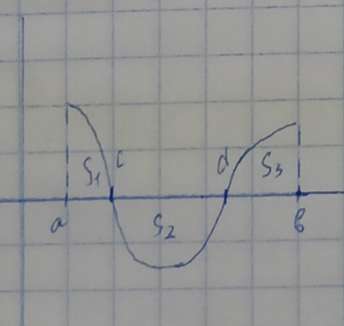 S₁ c d S₃
a S₂ b